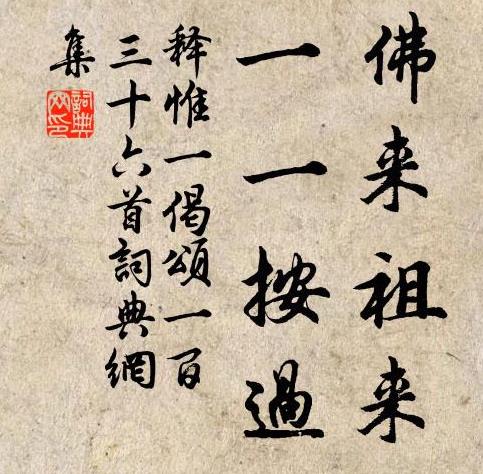 佛来祖来
一一按過
释惟一偈頌一百
三十六首詞典網
集
詞典
网印